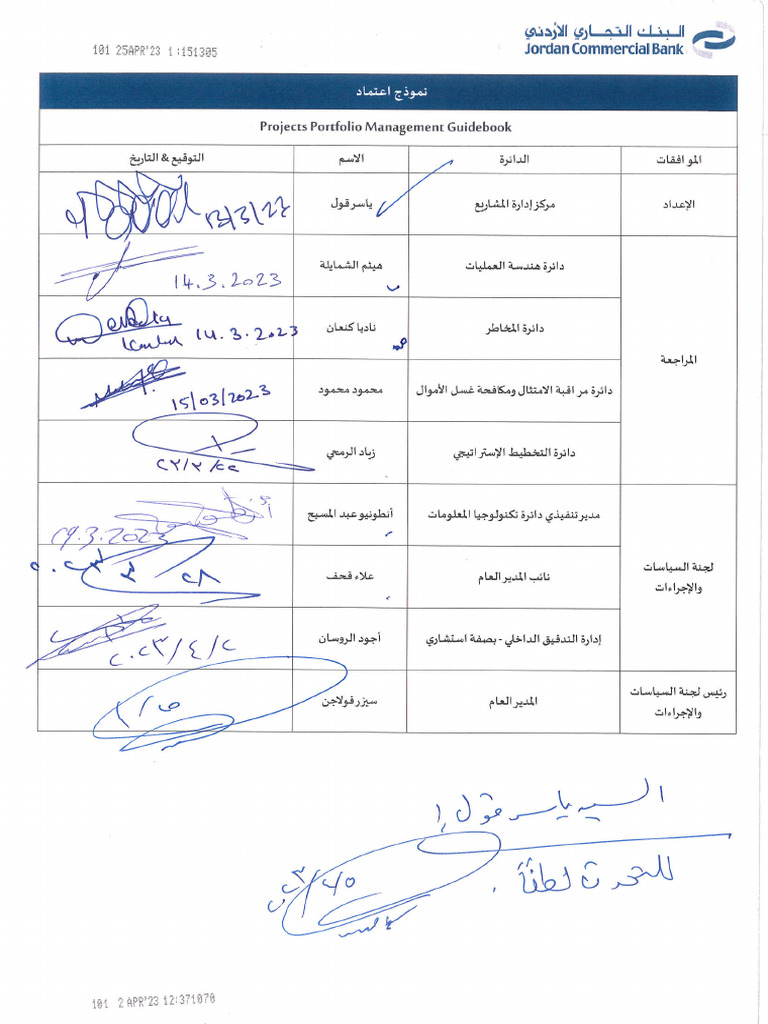 البنك التجاري الأردني
Jordan Commercial Bank
101 25APR'23 1:151305
نموذج اعتماد
Projects Portfolio Management Guidebook
الموافقات الدائرة الاسم التوقيع & التاريخ
الإعداد مركز إدارة المشاريع ياسر قول 13/3/23
المراجعة
دائرة هندسة العمليات هيثم الشمايلة 14.3.2023
دائرة المخاطر ناديا كنعان 14.3.2023
دائرة مراقبة الامتثال ومكافحة غسل الأموال محمود محمود 15/03/2023
دائرة التخطيط الإستراتيجي زياد الرمحي
لجنة السياسات والإجراءات
مدير تنفيذي دائرة تكنولوجيا المعلومات أنطونيو عبد المسيح 19.3.2023
نائب المدير العام علاء قحف ٢٠٢٣/٣/٢٨
إدارة التدقيق الداخلي - بصفة استشاري أجود الروسان ٢٠٢٣/٤/٢
رئيس لجنة السياسات والإجراءات المدير العام سيزر قولاجن
السيد ياسر قول
للتحدث لطفاً
101 2 APR'23 12:371070